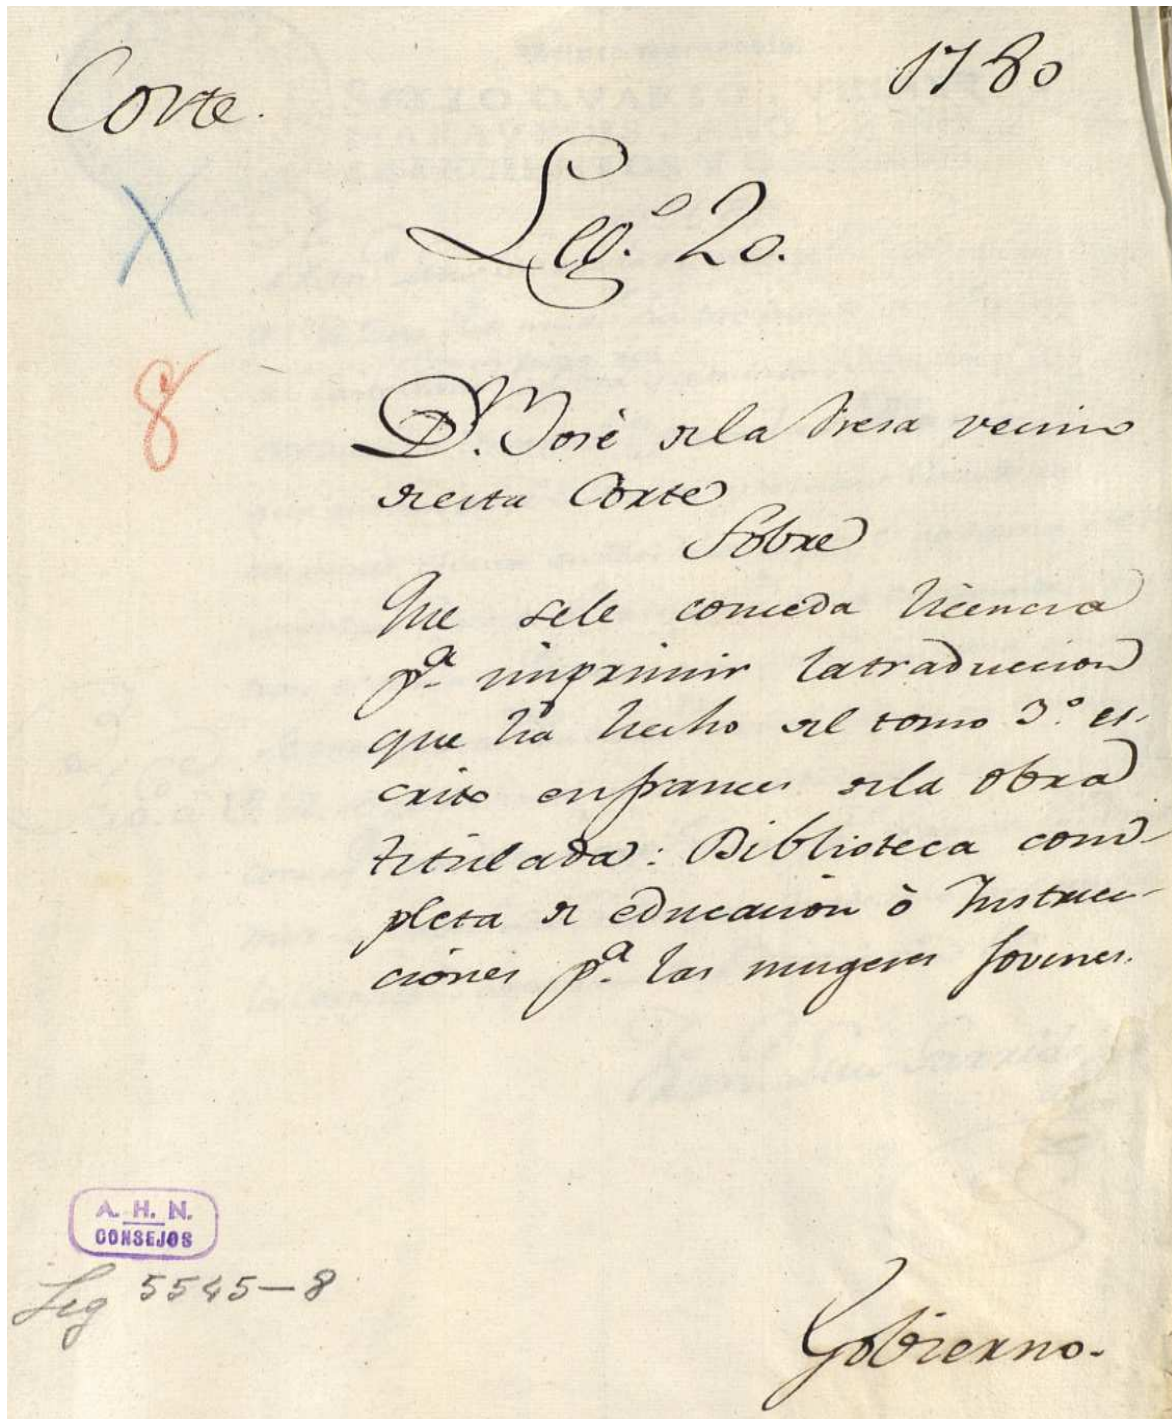 Corte.
1780
Leg.º 20.
D. Josè de la Presa vecino
de esta Corte
Sobre
Que sele conceda licencia
p.ª imprimir latraduccion
que ha hecho del tomo 3.º es-
crito enfrances dela obra
titulada: Biblioteca com-
pleta de educacion ò Instruc-
ciones p.ª las mugeres Jovenes.
8
A. H. N.
CONSEJOS
Leg 5545-8
Gobierno.